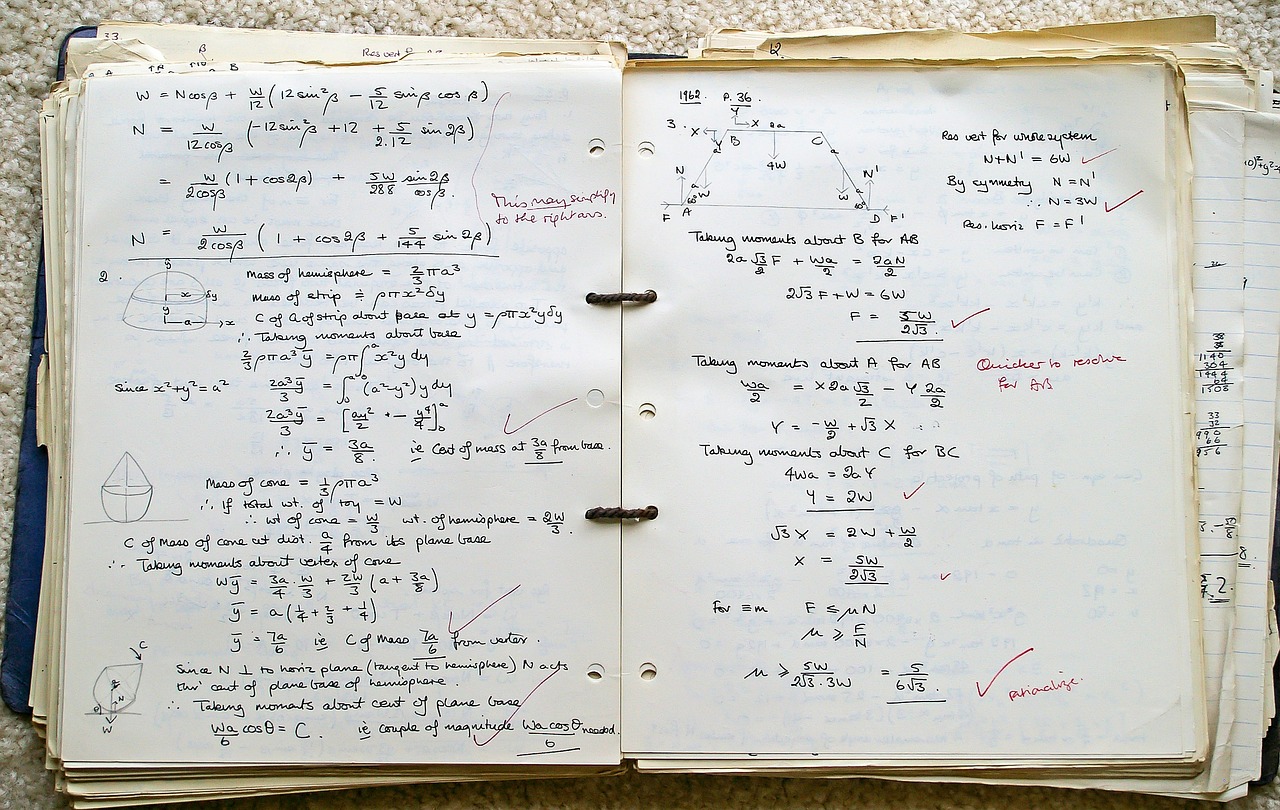 33.
β
Res vert
A
B
W = N cosβ + W/12 (12 sin²β − 5/12 sinβ cosβ)
N = W/12cosβ (−12 sin²β + 12 + 5/2.12 sin 2β)
= W/2cosβ (1 + cos2β) + 5W/288 sin2β/cosβ.
This may simplify
to the right ans.
N = W/2cosβ (1 + cos 2β + 5/144 sin 2β)
2.
y
x
δy
y
a
x
Mass of hemisphere = 2/3 πa³
Mass of strip ≑ ρπx²δy
C of G of strip about base at y = ρπx²yδy
∴ Taking moments about base
2/3 ρπa³ȳ = ρπ∫₀ᵃ x²y dy
Since x²+y² = a² 2a³ȳ/3 = ∫₀ᵃ (a²−y²) y dy
2a³ȳ/3 = [ay²/2 − y⁴/4]₀ᵃ
∴ ȳ = 3a/8 ie Cent of mass at 3a/8 from base.
Mass of cone = 1/3 ρπa³
∴ If total wt. of toy = W
∴ wt of cone = W/3 wt. of hemisphere = 2W/3.
C of Mass of cone at dist. a/4 from its plane base
∴ Taking moments about vertex of cone
Wȳ = 3a/4 . W/3 + 2W/3 (a + 3a/8)
ȳ = a(1/4 + 2/3 + 1/4)
ȳ = 7a/6 ie C of Mass 7a/6 from vertex.
C
N
θ
W
Since N ⊥ to horiz plane (tangent to hemisphere) N acts
thro' cent of plane base of hemisphere.
∴ Taking moments about cent of plane base
Wa/6 cosθ = C. ie couple of magnitude Wa cosθ/6 needed.
12.
1962. P. 36.
3.
Y
X
2a
X
B
C
Y
a
a
4W
N
N'
a
a
W
W
60°
60°
F
A
D
F'
Res vert for whole system
N+N' = 6W
By symmetry N = N'
∴ N = 3W
Res. horiz F = F'
Taking moments about B for AB
2a √3/2 F + Wa/2 = 2aN/2
2√3 F + W = 6W
F = 5W/2√3.
Taking moments about A for AB
Quicker to resolve
for AB
Wa/2 = X 2a √3/2 − Y 2a/2
Y = −W/2 + √3 X
Taking moments about C for BC
4Wa = 2aY
Y = 2W
√3 X = 2W + W/2
X = 5W/2√3
For ≡m F ≤ μN
μ ≥ F/N
μ ≥ 5W/2√3.3W = 5/6√3.
rationalize.
38
38
1140
304
1444
64
1508
33
32
990
66
956
8.
2.